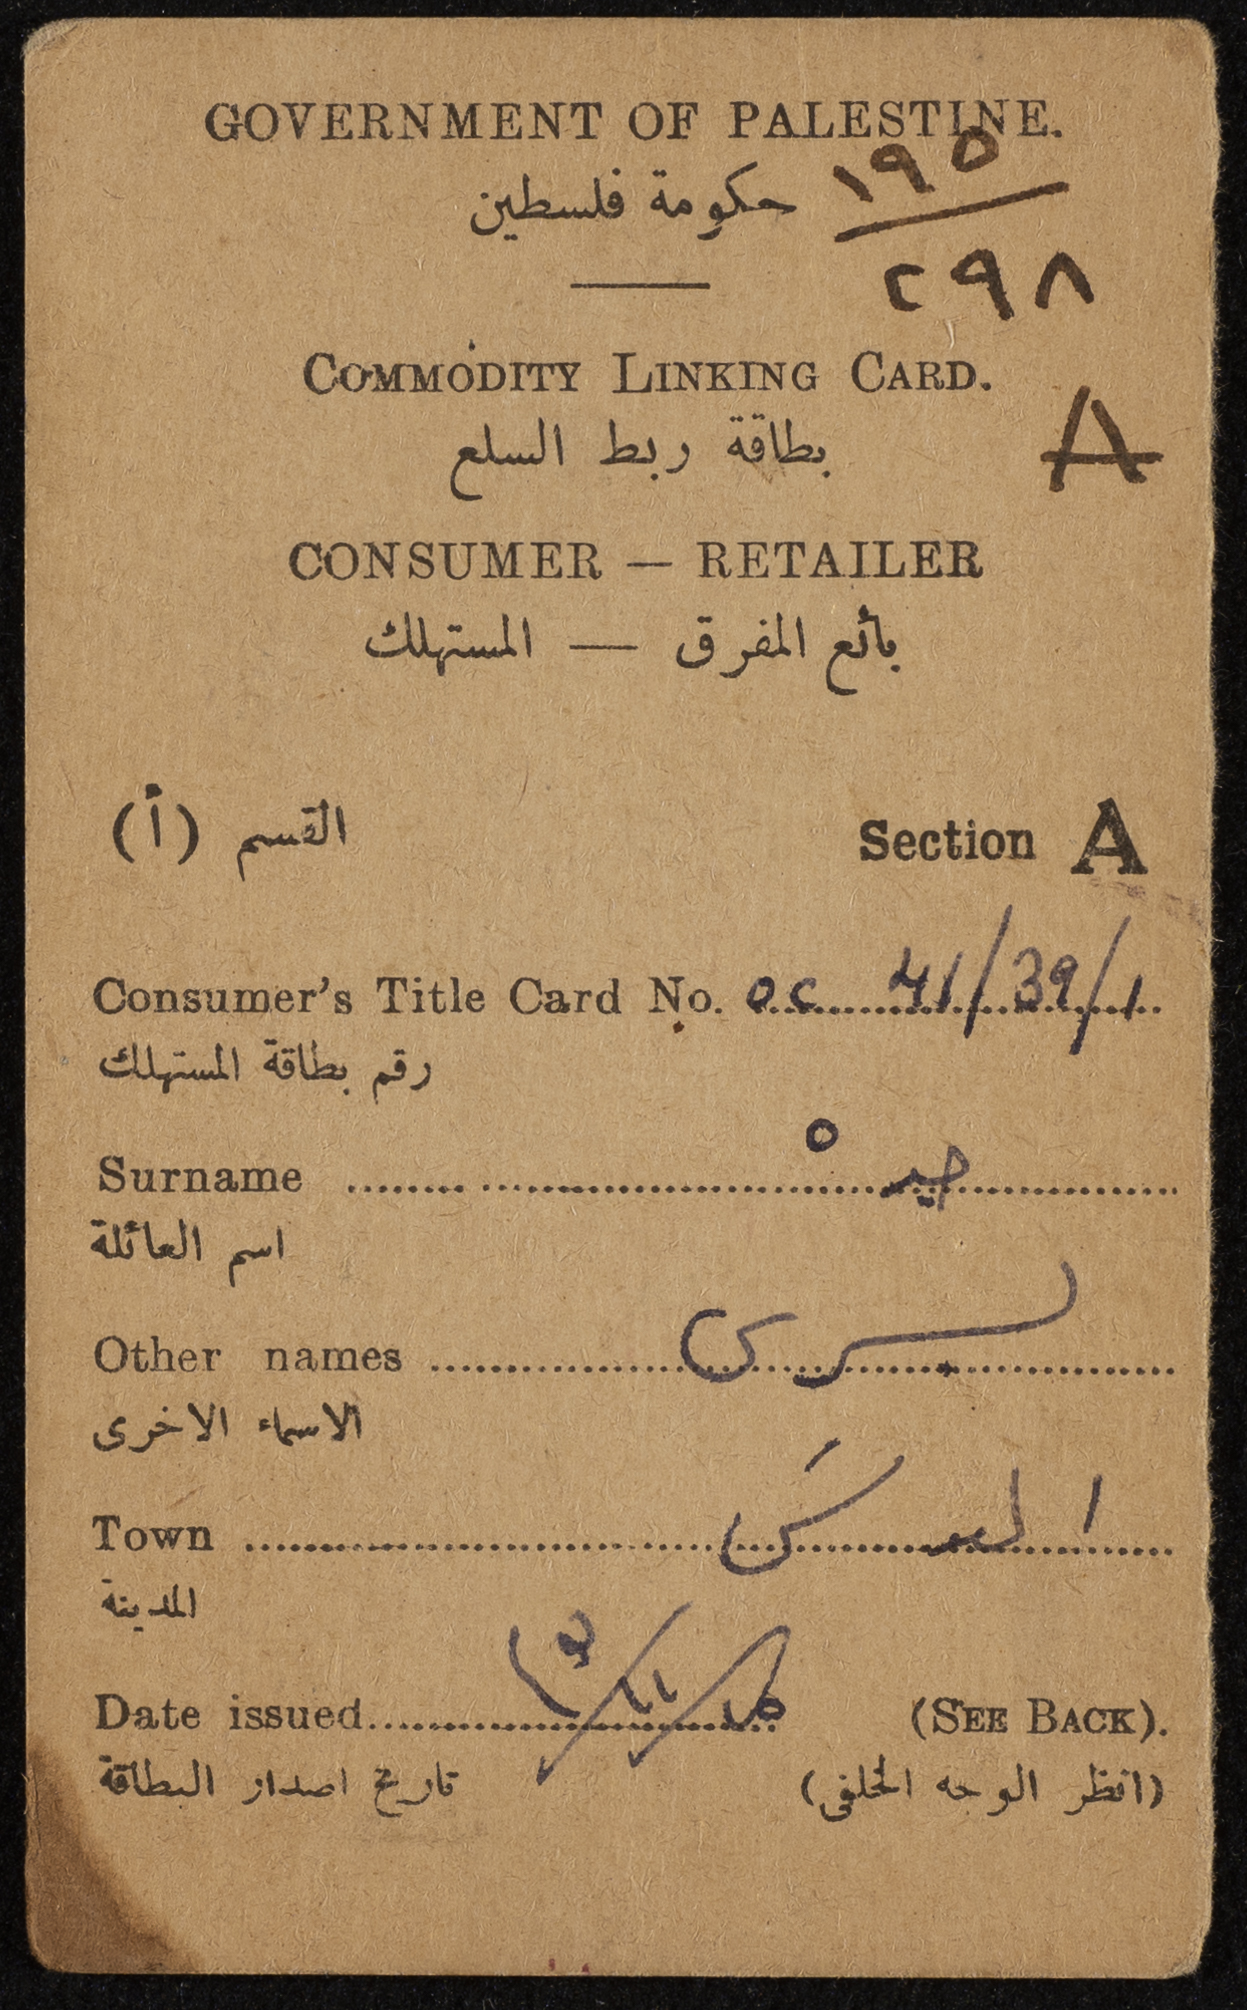 GOVERNMENT OF PALESTINE.
١٩٥
حكومة فلسطين
٢٩٨
COMMODITY LINKING CARD.
بطاقة ربط السلع
A
CONSUMER — RETAILER
بائع المفرق — المستهلك
القسم (أ)
Section A
Consumer's Title Card No. 41/39/1
رقم بطاقة المستهلك
Surname
اسم العائلة
Other names يسرى
الاسماء الاخرى
Town
المدينة
Date issued
(SEE BACK).
تاريخ اصدار البطاقة
(انظر الوجه الخلفى)